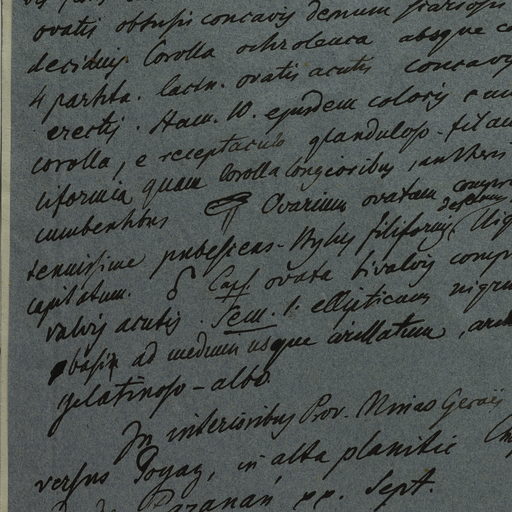 ovatis obtusis concavis demum scariosis
deciduis. Corolla ochroleuca absque
4 partita. lacin. ovatis acutis concavis
erectis. Stam. 10. ejusdem coloris cum
corolla, e receptaculo glanduloso - filam
liformia quam Corolla longioribus, antheris
cumbentibus ♀ Ovarium ovatum compre
tenuissime pubescens - Stylus filiformis
capitatum. ♂ Caps. ovata bivalvis compr
valvis acutis. Sem. 1. ellipticum nigrum
basin ad medium usque arillatum,
gelatinoso - albo
In interioribus Prov. Minas Geraës
versus Goyaz, in alta planitie
Paranan pp. Sept.